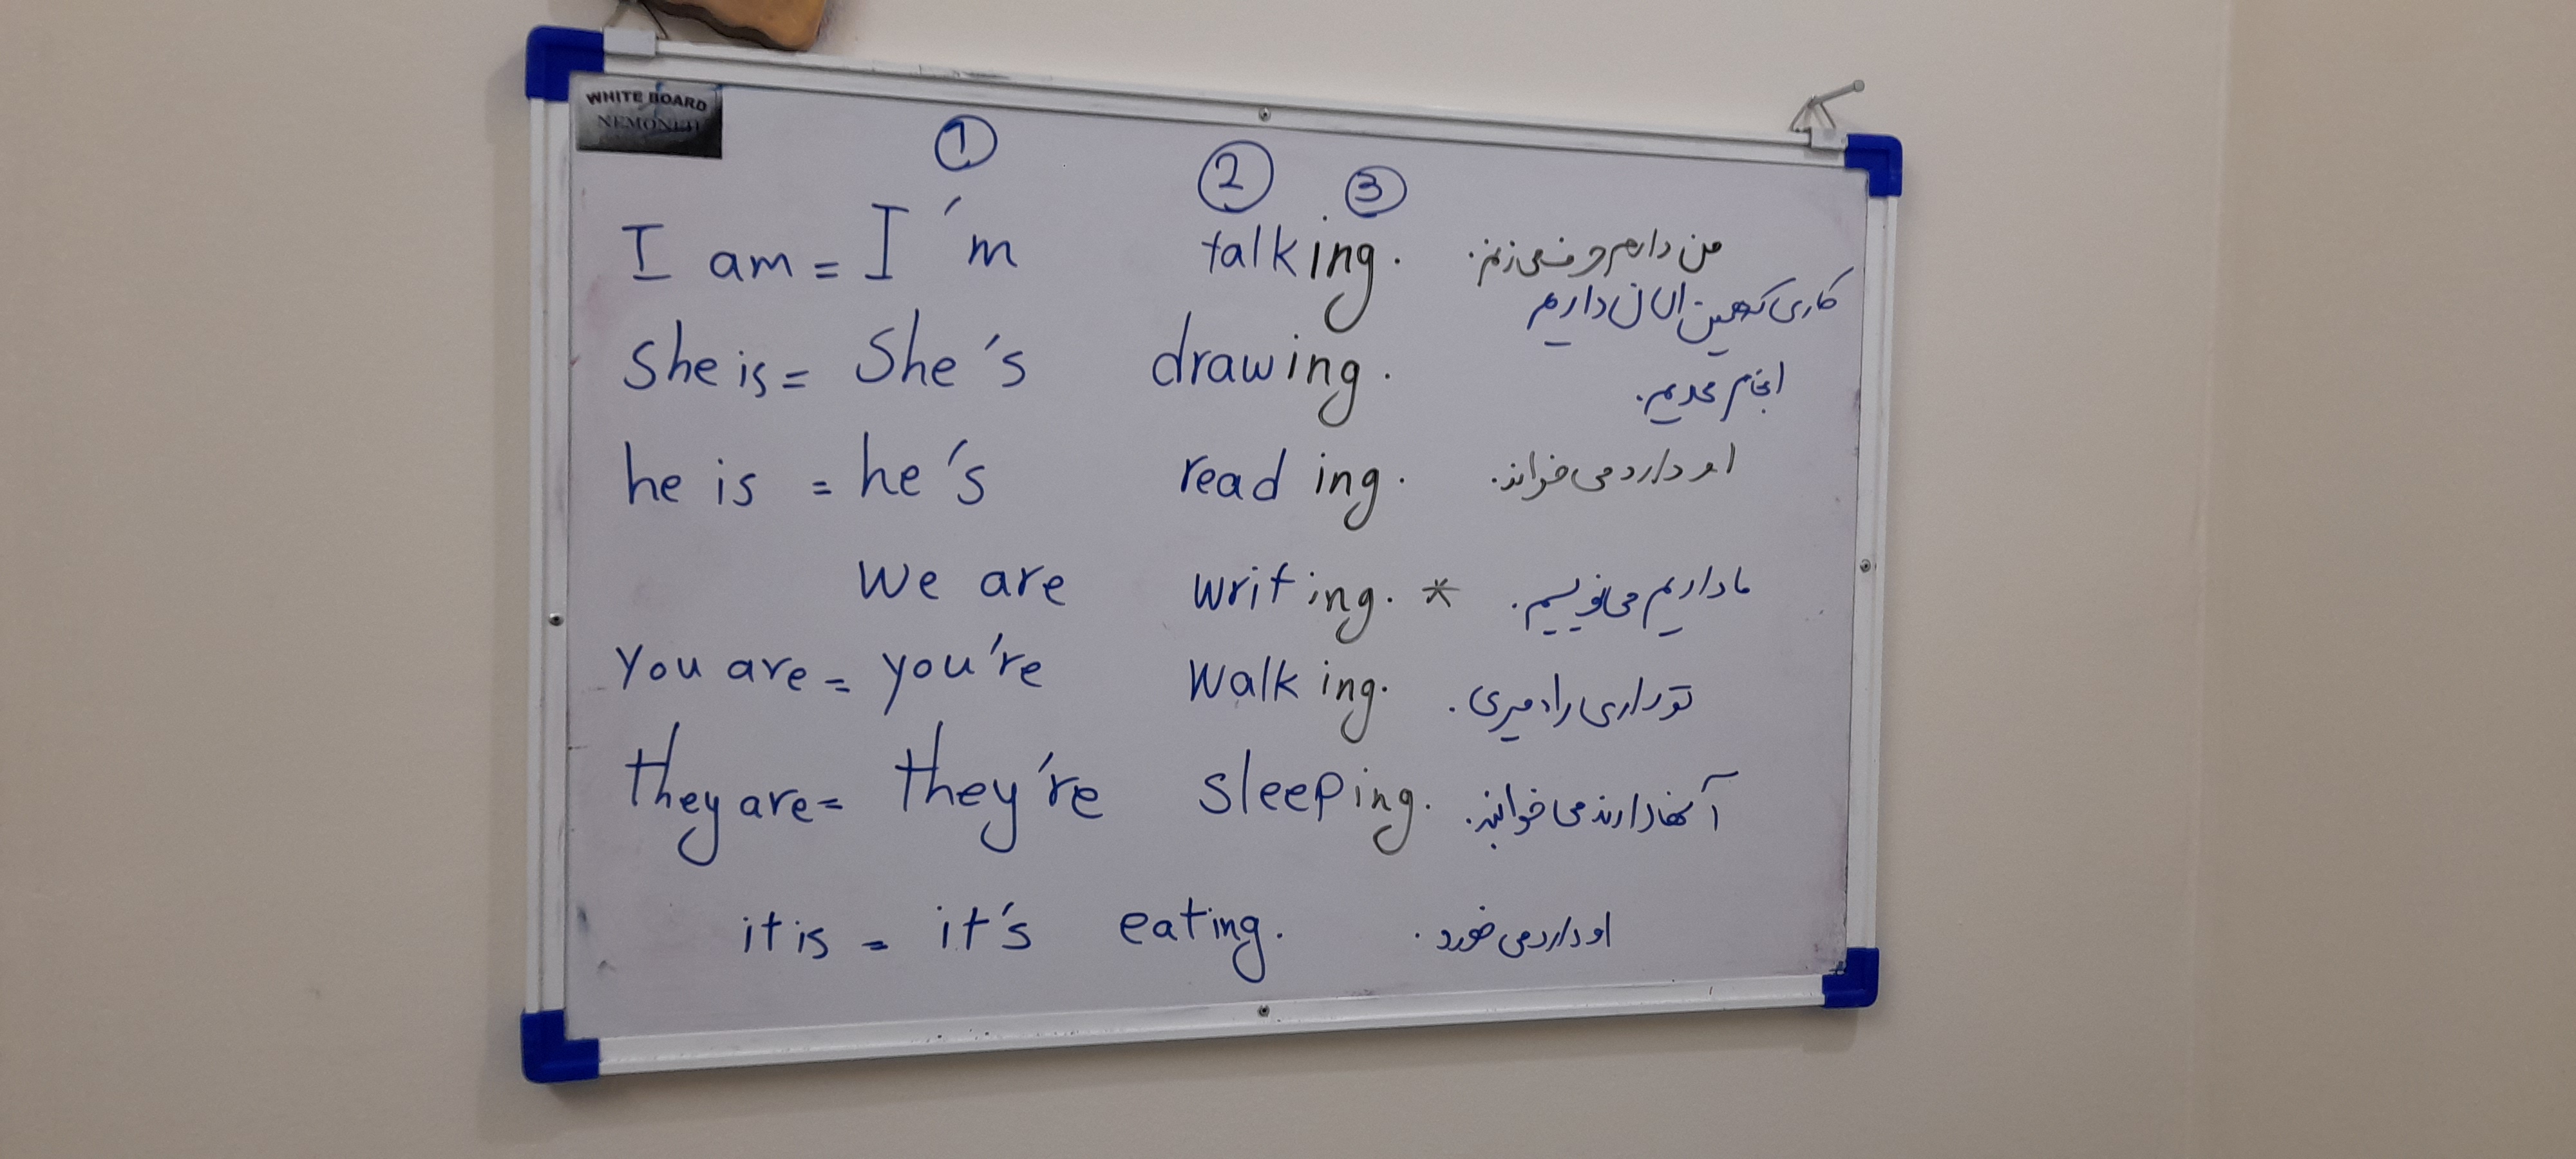 WHITE BOARD
NEMONEH
① ② ③
I am = I'm talking. من دارم حرف می زنم.
کاری که همین الان داریم
She is = She's drawing.
انجام میدیم.
he is = he's reading. او دارد می خواند.
We are writing. * ما داریم می نویسیم.
You are = you're walking. تو داری راه میری.
they are = they're sleeping. آنها دارند می خوابند.
it is = it's eating. او دارد می خورد.